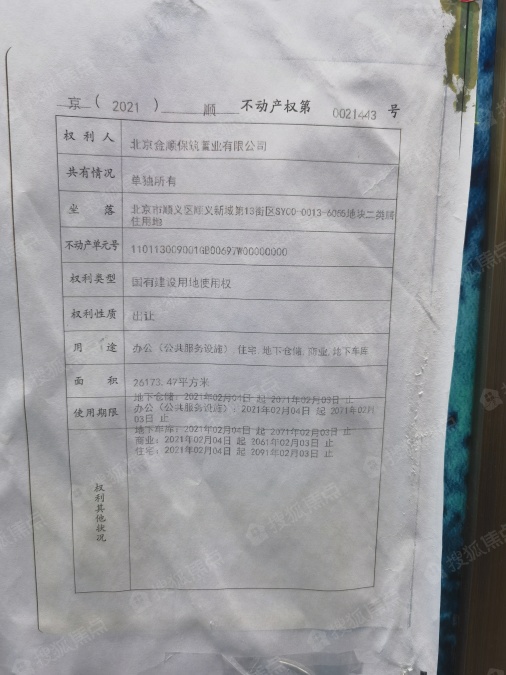 京 ( 2021 ) 顺 不动产权第 0021443 号
权利人 北京金顺保筑置业有限公司
共有情况 单独所有
坐落 北京市顺义区顺义新城第13街区SYC0-0013-6055地块二类居
住用地
不动产单元号 110113009001GB00697W00000000
权利类型 国有建设用地使用权
权利性质 出让
用途 办公（公共服务设施）,住宅,地下仓储,商业,地下车库
面积 26173.47平方米
使用期限 地下仓储：2021年02月04日 起 2071年02月03日 止
办公（公共服务设施）：2021年02月04日 起 2071年02月
03日 止
地下车库：2021年02月04日 起 2071年02月03日 止
商业：2021年02月04日 起 2061年02月03日 止
住宅：2021年02月04日 起 2091年02月03日 止
权利其他状况
搜狐焦点